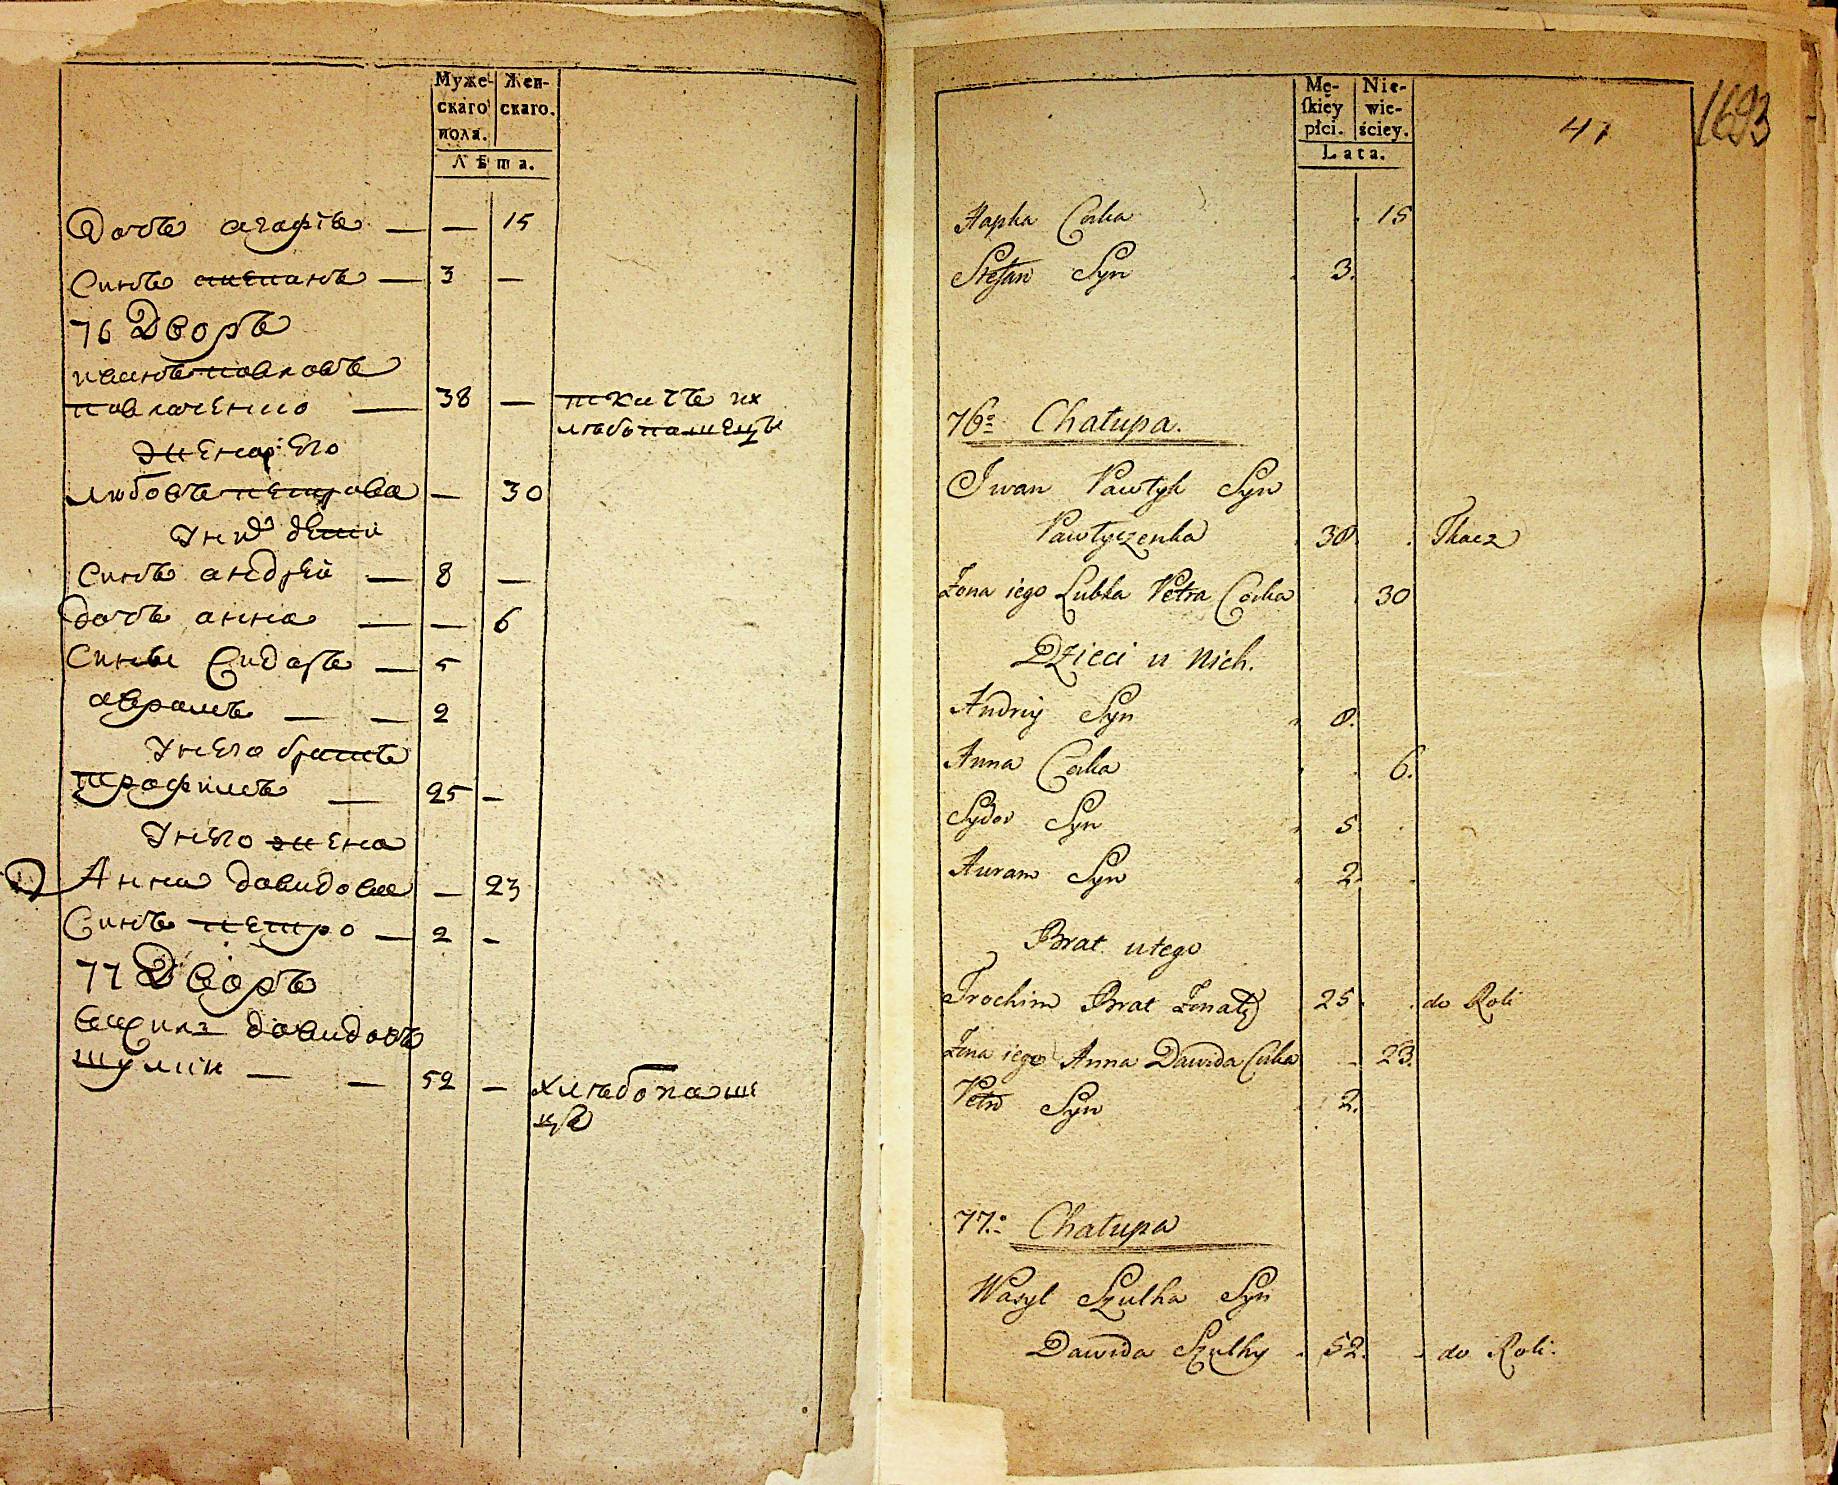 Муже-
скаго
пола.
Жен-
скаго.
Лѣта.
Дочь агафія — — 15
Синъ степанъ — 3 —
76 Дворъ
иванъ павловъ
павлюченко — 38 —
ткачъ их
хлѣбопашецъ
жена Его
любовь петрова — 30
У них дети
Синъ андрей — 8 —
дочь анна — — 6
Сины Сидаръ — 5
аврамъ — — 2
У него братъ
трофимъ — 25 —
У него жена
Анна давидова — 23
Синъ петро — 2 —
77 Дворъ
василь давидовъ
шулик — — 52 —
хлѣбопаше
цъ
Mę-
ſkiey
płci.
Nie-
wie-
ściey.
Lata.
41
1693
Hapka Corka 15
Stefan Syn 3.
76o Chałupa.
Iwan Pawłyk Syn
Pawłyczenka 38 Tkacz
Żona iego Lubka Petra Corka 30
Dzieci u Nich.
Andriy Syn 8.
Anna Corka 6.
Sydor Syn 5
Auram Syn 2.
Brat utego
Trochim Brat Żonaty 25 do Roli
Żona iego Anna Dawida Corka 23.
Petro Syn 2.
77o Chałupa
Wasyl Szulha Syn
Dawida Szulhy 52. do Roli.